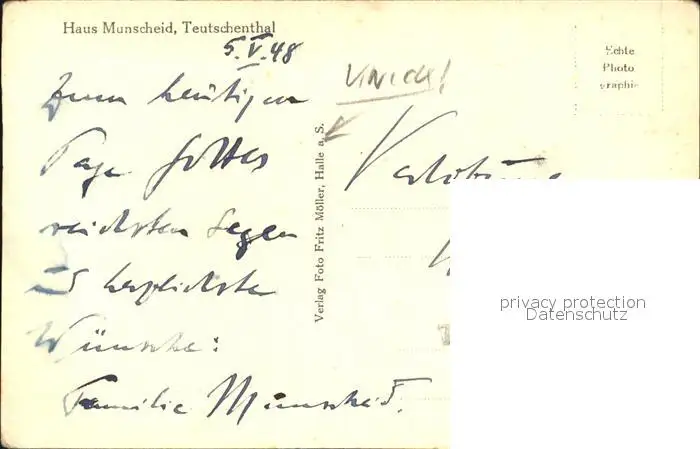 Haus Munscheid, Teutschenthal
5.V.48
Zum heutigen
Tage Gottes
reichsten Segen
u herzlichste
Wünsche:
Familie Munscheid.
Verlag Foto Fritz Möller, Halle a. S.
Echte
Photo
graphie
privacy protection
Datenschutz